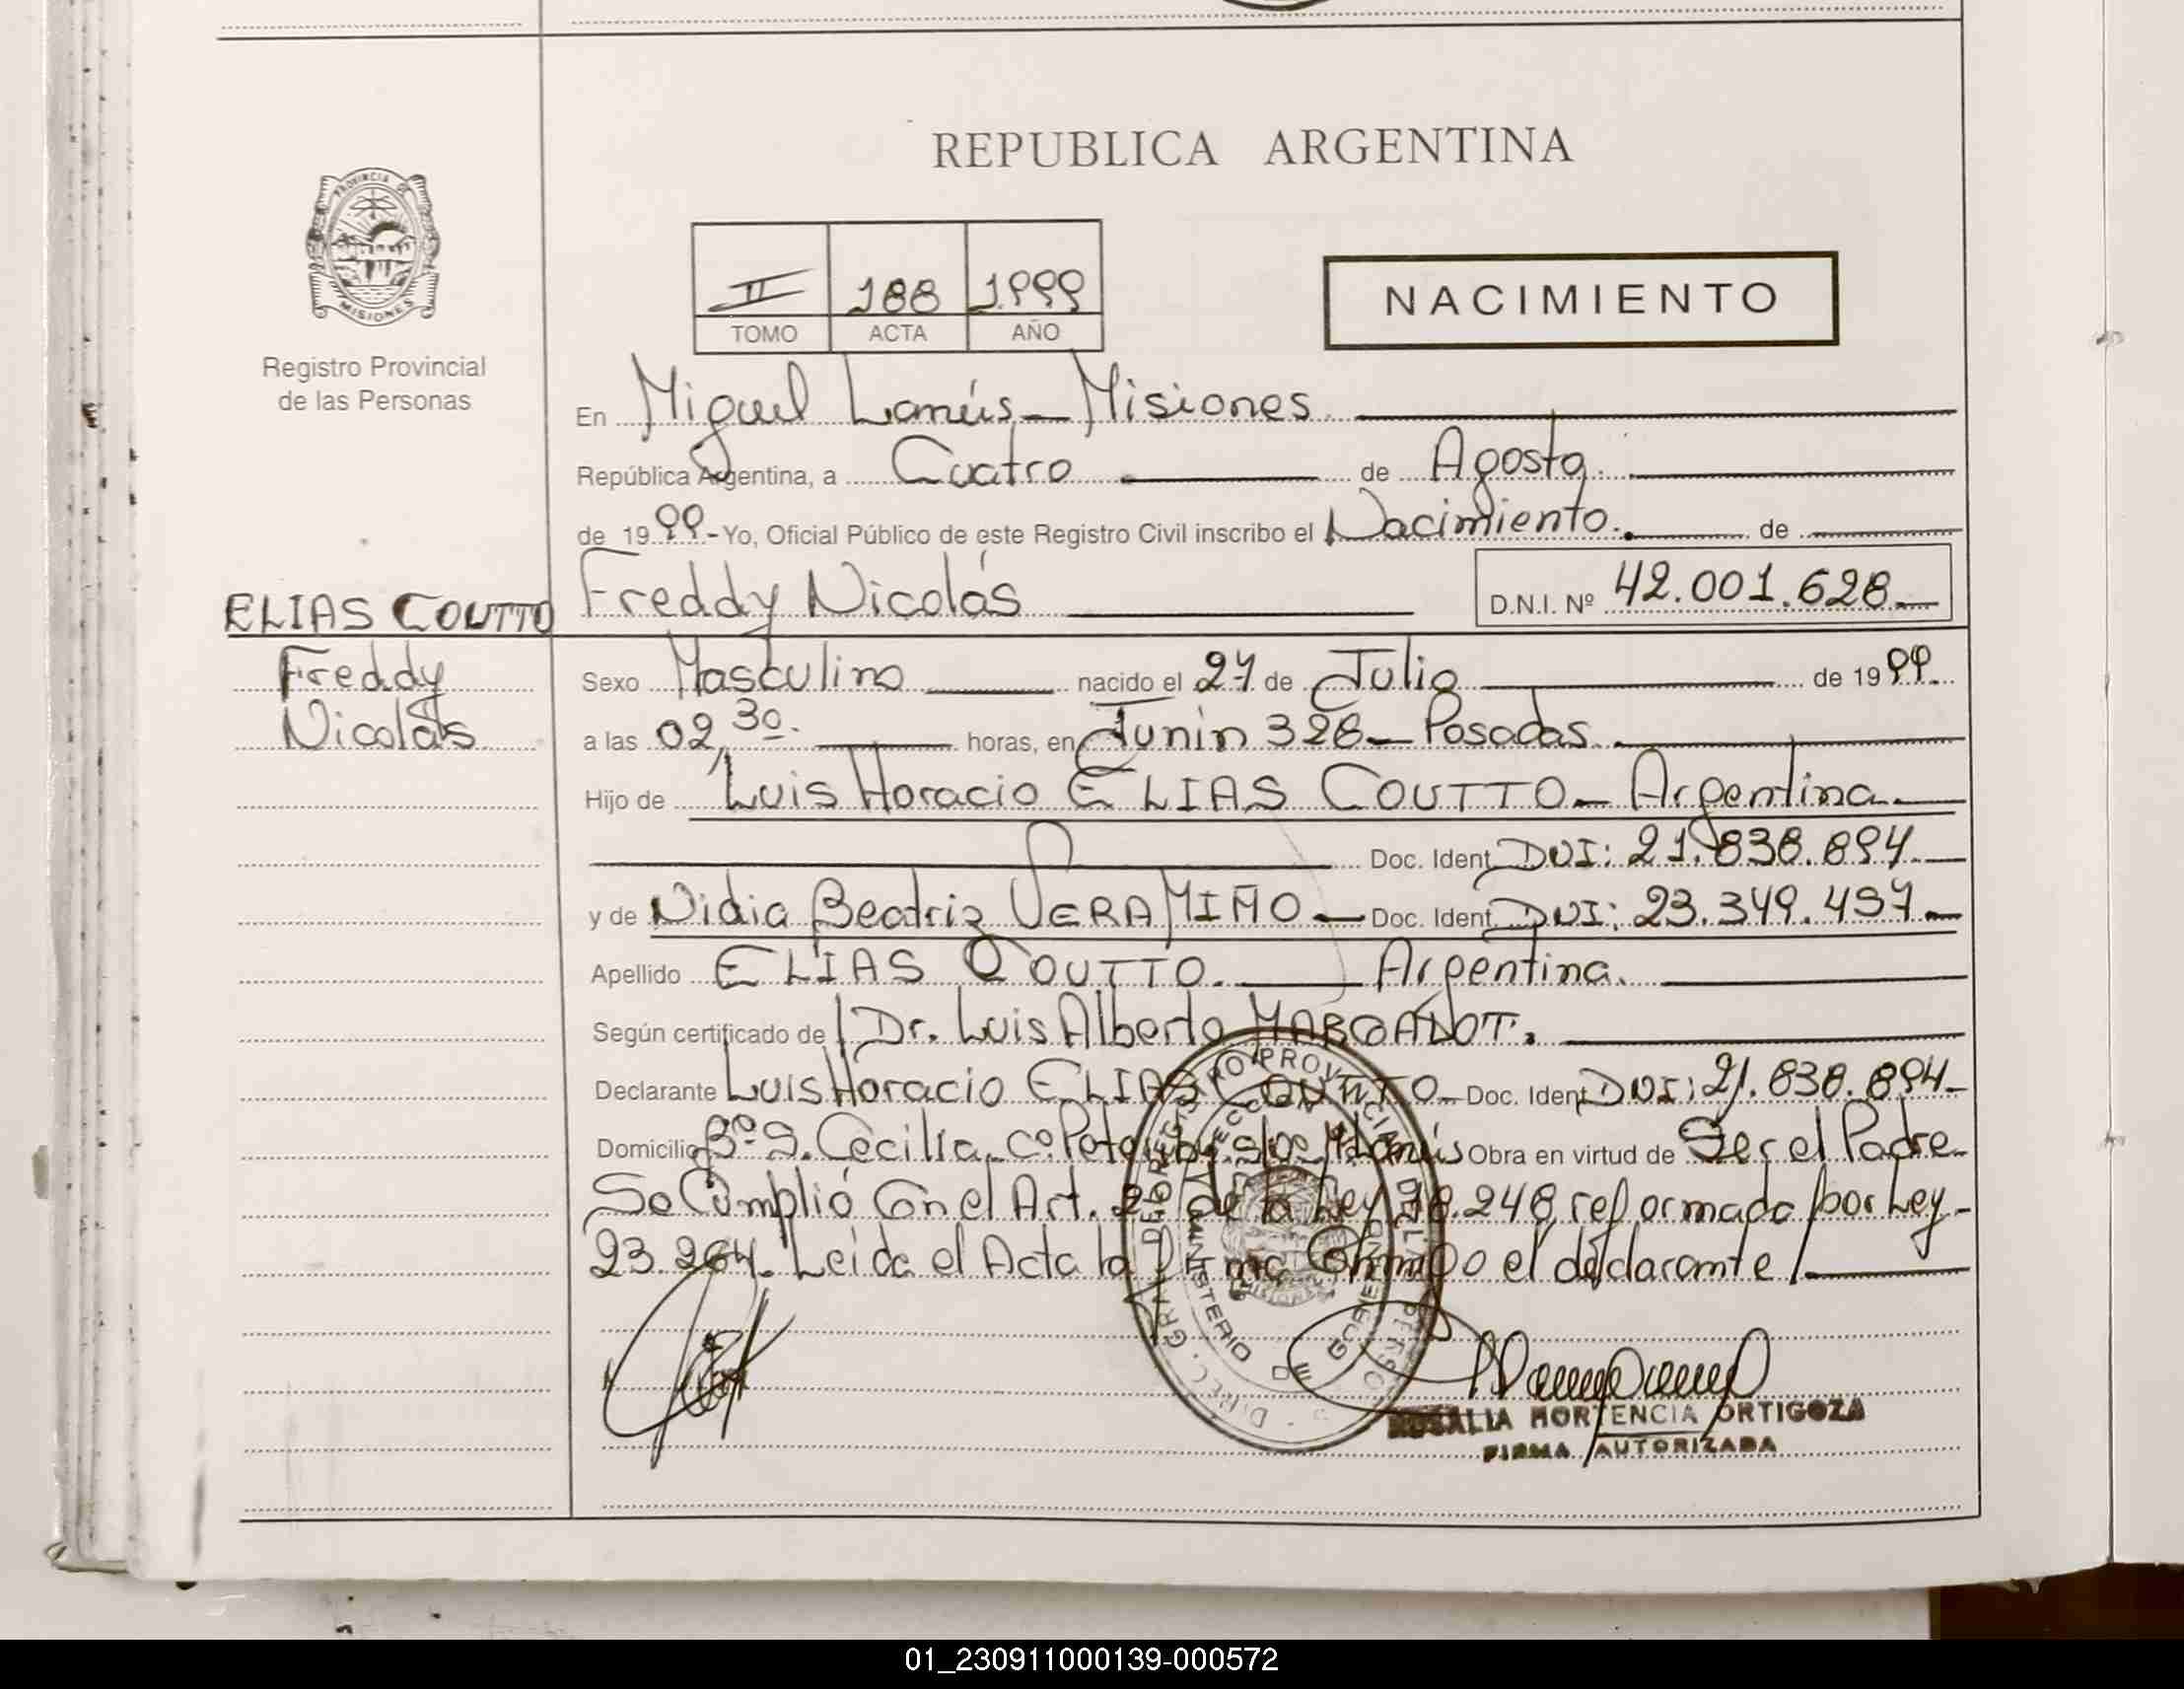 REPUBLICA ARGENTINA
PROVINCIA DE MISIONES
Registro Provincial
de las Personas
II 188 1999
TOMO ACTA AÑO
NACIMIENTO
En Miguel Lanús - Misiones
República Argentina, a Cuatro de Agosto
de 1999 - Yo, Oficial Público de este Registro Civil inscribo el Nacimiento. de
Freddy Nicolás D.N.I. Nº 42.001.628
ELIAS COUTTO
Freddy
Nicolás
Sexo Masculino nacido el 27 de Julio de 1999.
a las 02,30. horas, en Junin 328 - Posadas.
Hijo de Luis Horacio ELIAS COUTTO - Argentina.
Doc. Ident. DNI: 21.838.894.
y de Nidia Beatriz VERA MIÑO - Doc. Ident. DNI: 23.349.457.
Apellido ELIAS COUTTO. Argentina.
Según certificado de Dr. Luis Alberto MARGALOT.
Declarante Luis Horacio ELIAS COUTTO - Doc. Ident. DNI: 21.838.894 -
Domicilio Bº S. Cecilia Lanús Obra en virtud de Ser el Padre
Se Cumplió Con el Art. 2 de la Ley 18.248, reformado por Ley -
23.264. Leída el Acta la Firma Conmigo el declarante
DIREC. GRAL. DEL REGISTRO PROVINCIAL DE LAS PERSONAS
MINISTERIO DE GOBIERNO
ROSALIA HORTENCIA ORTIGOZA
FIRMA AUTORIZADA
01_230911000139-000572